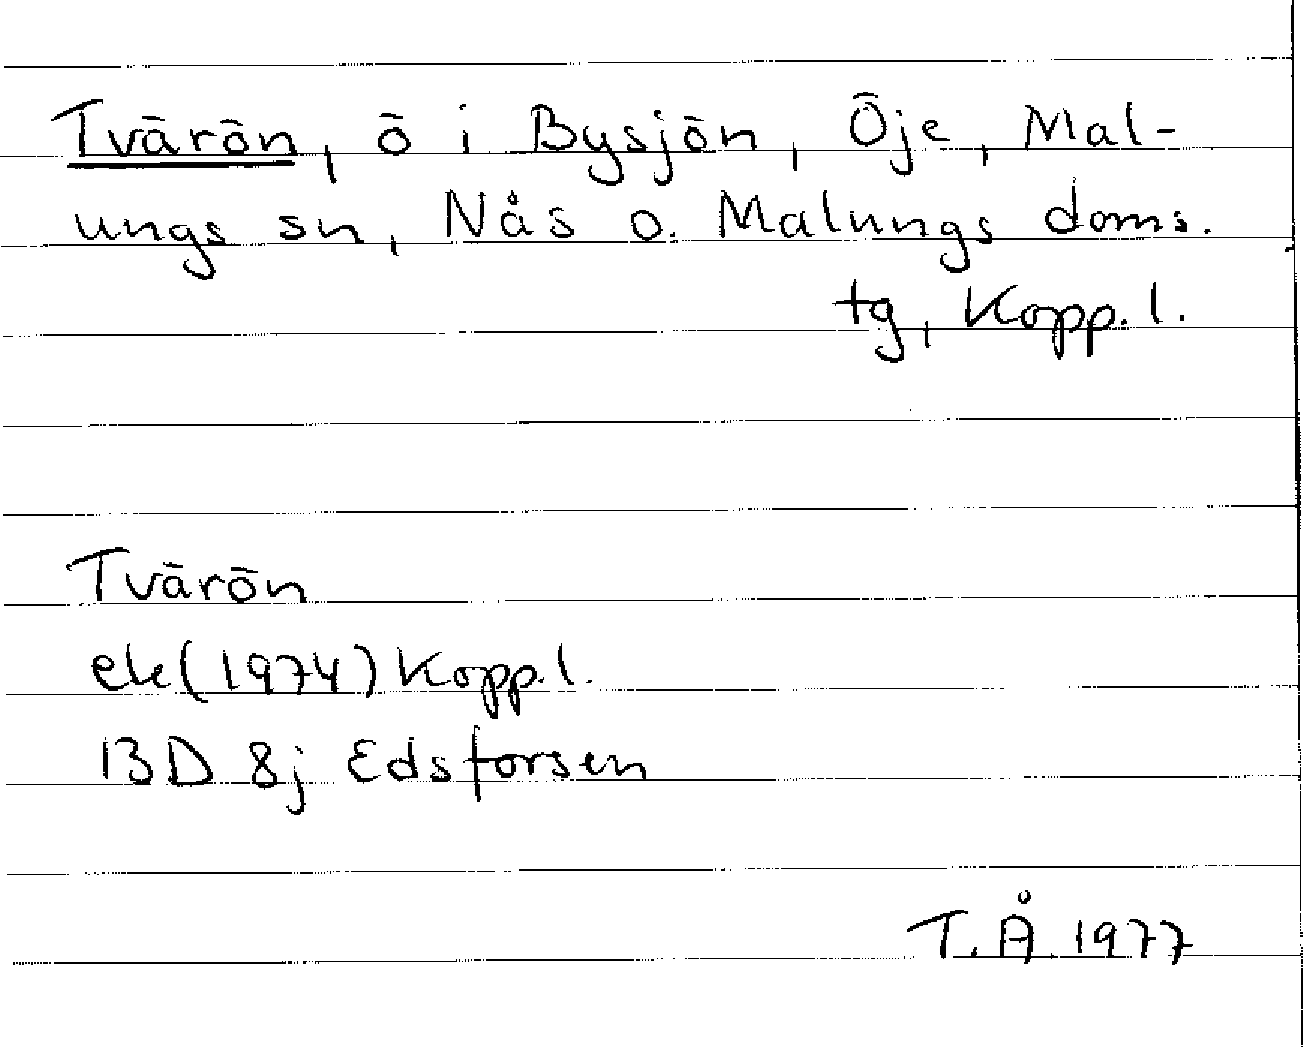 Tvärön, ö i Bysjön, Öje, Mal-
ungs sn, Nås o. Malungs doms.
tg, Kopp. l.
Tvärön
ek (1974) Kopp. l.
13D 8j Edsforsen
T.Å. 1977